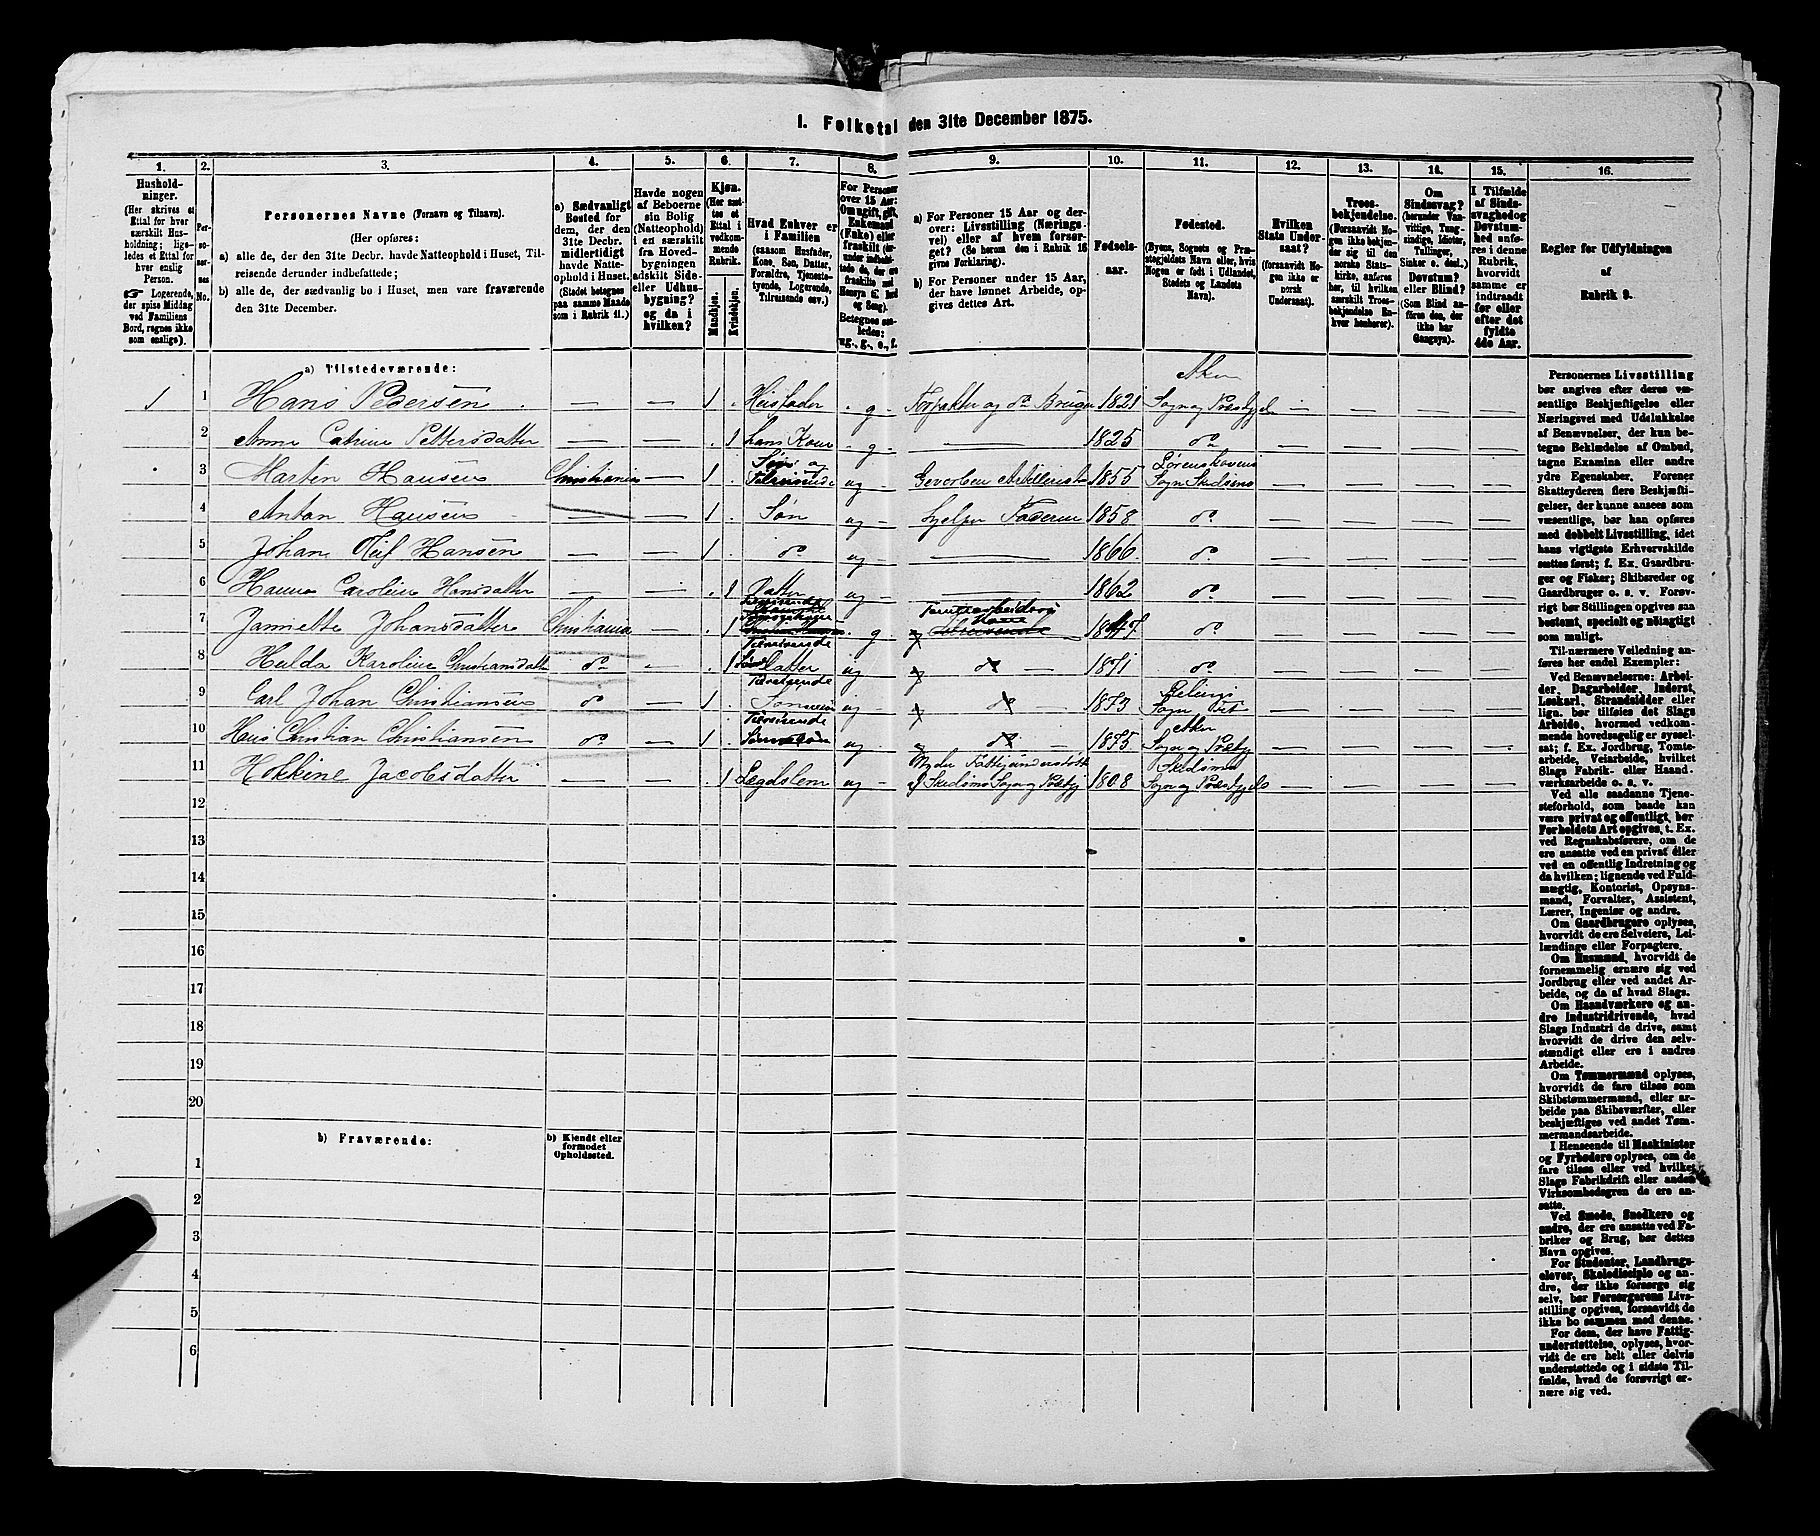 1. Folketal den 31te December 1875.
1. 2. 3. 4. 5. 6. 7. 8. 9. 10. 11. 12. 13. 14. 15. 16.
Hushold-
ninger.
(Her skrives et
Ettal for hver
særskilt Hus-
holdning; lige-
ledes et Ettal for
hver enslig
Person.
☞ Logerende,
der spise Middag
ved Familiens
Bord, regnes ikke
som enslige).
Per-
so-
ner-
nes
No.
Personernes Navne (Fornavn og Tilnavn).
(Her opføres:
a) alle de, der den 31te Decbr. havde Natteophold i Huset, Til-
reisende derunder indbefattede;
b) alle de, der sædvanlig bo i Huset, men vare fraværende
den 31te December.
a) Sædvanligt
Bosted for
dem, der den
31te Decbr.
midlertidigt
havde Natte-
ophold i Huset.
(Stedet betegnes
paa samme Maade
som i Rubrik 11.)
Havde nogen
af Beboerne
sin Bolig
(Natteophold)
i en særskilt
fra Hoved-
bygningen
adskilt Side-
eller Udhus-
bygning?
og da i
hvilken?
Kjøn.
(Her sæt-
tes et
Ettal i
vedkom-
mende
Rubrik.
Mandkjøn.
Kvindekjøn.
Hvad Enhver er
i Familien
(saasom Husfader,
Kone, Søn, Datter,
Forældre, Tjeneste-
tyende, Logerende,
Tilreisende osv.)
For Personer
over 15 Aar:
Om ugift, gift,
Enkemand
(Enke) eller
fraskilt
Betegnes saa-
ledes:
ug., g., e., f.
a) For Personer 15 Aar og der-
over: Livsstilling (Nærings-
vei) eller af hvem forsør-
get? (Se herom den i Rubrik 16
givne Forklaring).
b) For Personer under 15 Aar,
der have lønnet Arbeide, op-
gives dettes Art.
Fødsels-
aar.
Fødested.
(Byens, Sognets og Præ-
stegjeldets Navn eller, hvis
Nogen er født i Udlandet,
Stedets og Landets
Navn).
Hvilken
Stats Under-
saat?
(forsaavidt No-
gen ikke er
norsk
Undersaat).
Troes-
bekjendelse.
(Forsaavidt No-
gen ikke bekjen-
der sig til den
norske Stats-
kirke, anføres
her, til hvilken
særskilt Troes-
bekjendelse En-
hver henhører).
Om
Sindssvag?
(herunder Van-
vittige, Tung-
sindige, Idioter,
Tullinger,
Sinker o. desl.)
Døvstum?
eller Blind?
(Som Blind an-
føres den, der
ikke har
Gangsyn).
I Tilfælde
af Sinds-
svaghed og
Døvstum-
hed anfø-
res i denne
Rubrik,
hvorvidt
samme er
indtraadt
før eller
efter det
fyldte
4de Aar.
Regler for Udfyldningen
af
Rubrik 9.
a) Tilstedeværende:
1 1 Hans Pedersen — — 1 Husfader g Forpakter og do Bruger 1821 Aker Sogn og Præstegjeld
2 Anne Catrine Pettersdatter — — 1 hans Kone g — 1825 do
3 Martin Hansen Christiania — 1 Søn Tilreisende ug Gevorben Artillerist 1855 Lørenskovens Sogn Skedsmo
4 Anton Hansen — — 1 Søn ug hjelper Faderen 1858 do
5 Johan Hansen — — 1 do ug — 1866 do
6 Hanna Caroline Hansdatter — — 1 Datter ug 1862 do
7 Jannette Johansdatter Christiania 1 g Kone do
8 Hulda Karoline Christiansdatter do - 1 Tilreisende Datter ug do 1871 do
9 Carl Johan Christiansen do — 1 Tilreisende ug do 1873 Sogn
10 Christian Christiansen do — 1 Tilreisende ug do 1875 Aker Sogn og Præstgj
11 Hokkine Jacobsdatter — — 1 Lægdslem ug Nyder Fattigunderstøtt af Skedsmo Sogn og Præstgj 1808 Skedsmo Sogn og Præstegjeld
12
13
14
15
16
17
18
19
20
b) Fraværende:
b) Kjendt eller
formodet
Opholdssted.
1
2
3
4
5
6
Personernes Livsstilling
bør angives efter deres væ-
sentlige Beskjæftigelse eller
Næringsvei med Udelukkelse
af Benævnelser, der kun be-
tegne Beklædelse af Ombud,
tagne Examina eller andre
ydre Egenskaber. Forener
Skatteyderen flere Beskjæfti-
gelser, der kunne ansees som
væsentlige, bør han opføres
med dobbelt Livsstilling, idet
hans vigtigste Erhvervskilde
sættes først; f. Ex. Gaardbru-
ger og Fisker; Skibsreder og
Gaardbruger o. s. v. Forøv-
rigt bør Stillingen opgives saa
bestemt, specielt og nøiagtigt
som muligt.
Til nærmere Veiledning an-
føres her endel Exempler:
Ved Benævnelserne: Arbei-
der, Dagarbeider, Inderst,
Løskarl, Strandsidder eller
lign. bør tilføies det Slags
Arbeide, hvormed vedkom-
mende hovedsagelig er syssel-
sat; f. Ex. Jordbrug, Tomte-
arbeide, Veiarbeide, hvilket
Slags Fabrik- eller Haand-
værksarbeide o. s. v.
Ved alle saadanne Tjene-
steforhold, som baade kan
være privat og offentligt, bør
Forholdets Art opgives, t. Ex.
ved Regnskabsførere, om de
ere ansatte ved en privat eller
ved en offentlig Indretning og
da hvilken; lignende ved Fuld-
mægtig, Kontorist, Opsyns-
mand, Forvalter, Assistent,
Lærer, Ingeniør og andre.
Om Gaardbrugere oplyses,
hvorvidt de ere Selveiere, Lei-
lændinge eller Forpagtere.
Om Husmænd, hvorvidt de
fornemmelig ernære sig ved
Jordbrug eller ved andet Ar-
beide, og da af hvad Slags.
Om Haandværkere og an-
dre Industridrivende, hvad
Slags Industri de drive, samt
hvorvidt de drive den selv-
stændigt eller ere i andres
Arbeide.
Om Tømmermænd oplyses,
hvorvidt de fare tilsøs som
Skibstømmermænd, eller ar-
beide paa Skibsværfter, eller
beskjæftiges ved andet Tøm-
mermandsarbeide.
I Henseende til Maskinister
og Fyrbødere oplyses, om de
fare tilsøs eller ved hvilket
Slags Fabrikdrift eller anden
Virksomhedsgren de ere an-
satte.
Ved Smede, Snedkere og
andre, der ere ansatte ved Fa-
briker og Brug, bør dettes
Navn opgives.
For Studenter, Landbrugs-
elever, Skoledisciple og an-
dre, der ikke forsørge sig
selv, bør Forsørgerens Livs-
stilling opgives, forsaavidt de
ikke bo sammen med denne.
For dem, der have Fattig-
understøttelse, oplyses, hvor-
vidt de ere helt eller delvis
understøttede og i sidste Til-
fælde, hvad de forøvrigt er-
nære sig ved.